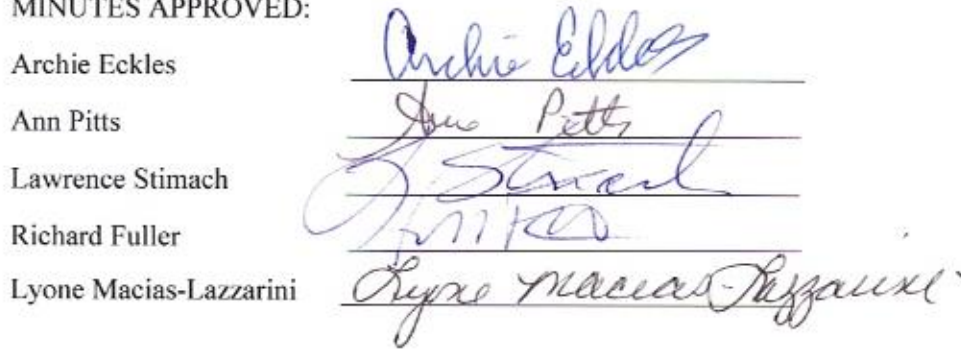 MINUTES APPROVED:
Archie Eckles Archie Eckles
Ann Pitts Ann Pitts
Lawrence Stimach L Stimach
Richard Fuller
Lyone Macias-Lazzarini Lyone Macias-Lazzarini